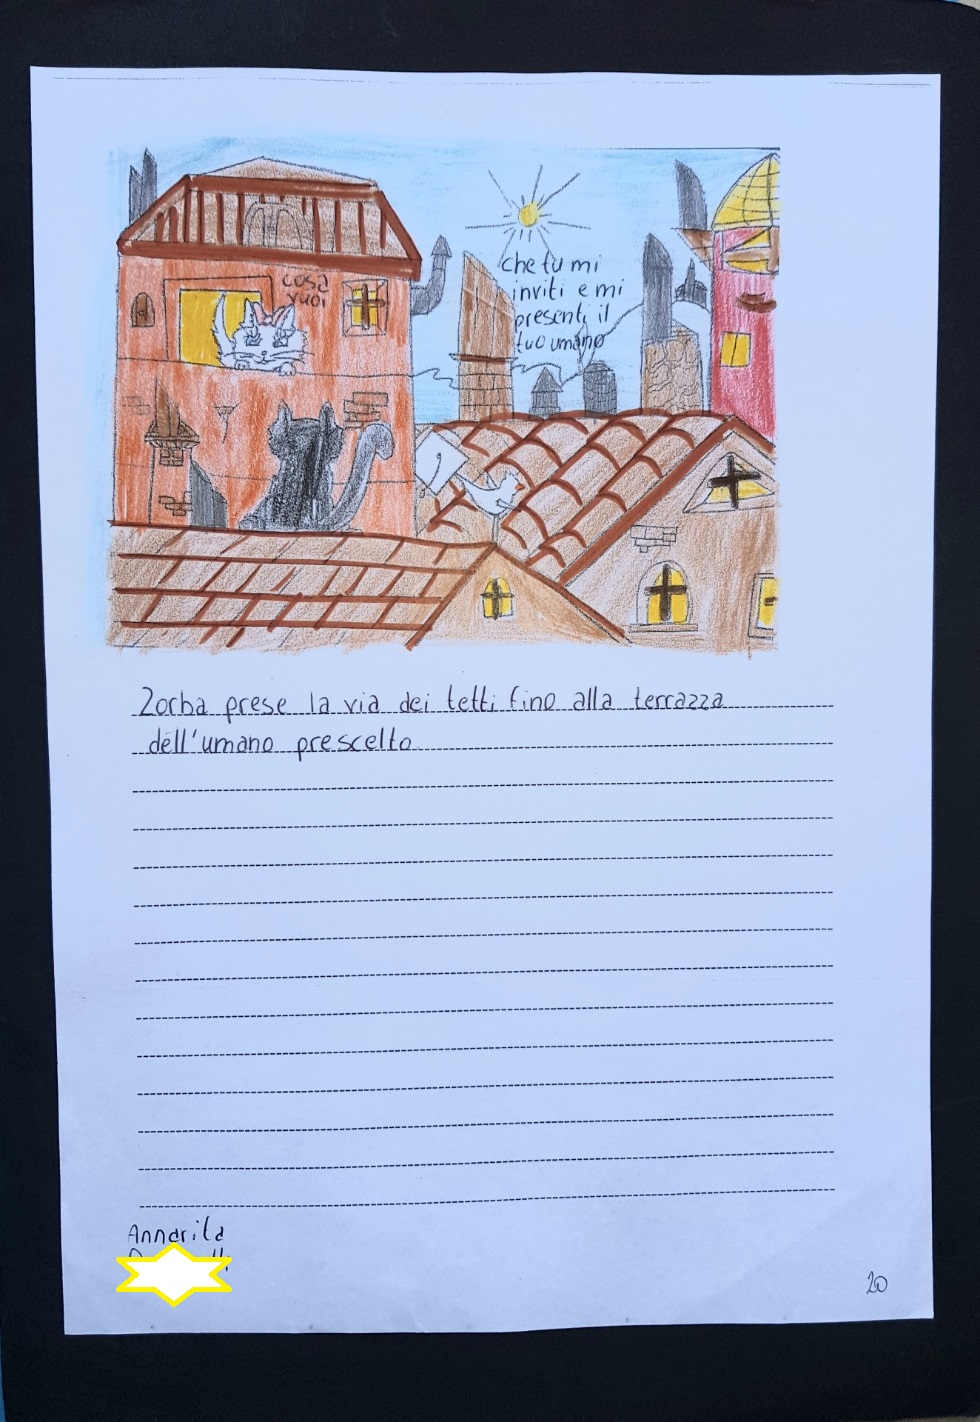 cosa
vuoi
che tu mi
inviti e mi
presenti il
tuo umano
Zorba prese la via dei tetti fino alla terrazza
dell'umano prescelto
Annarita
20